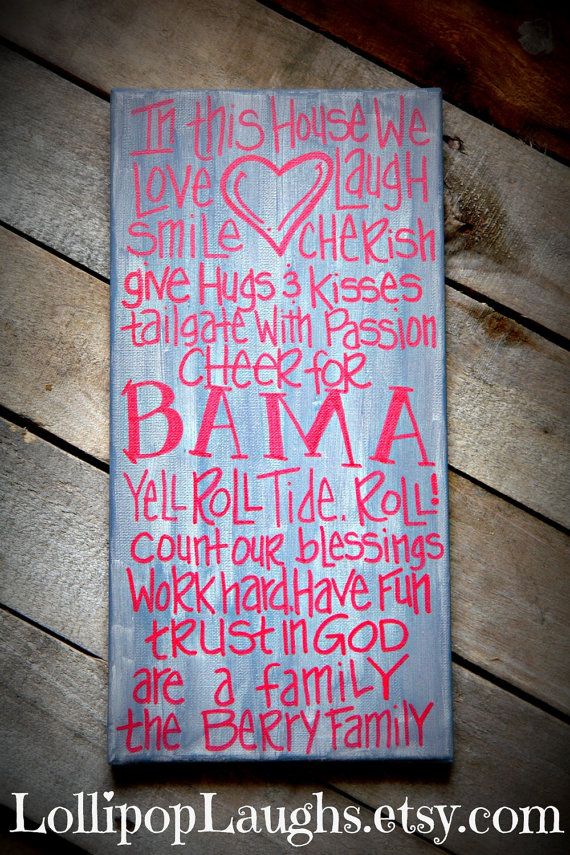 In this House We
Love Laugh
smile CHERish
give Hugs & Kisses
tailgate With Passion
CHEER for
BAMA
Yell Roll Tide. Roll!
count our blessings
Work hard. Have Fun
trust in GOD
are a family
the Berry Family
LollipopLaughs.etsy.com